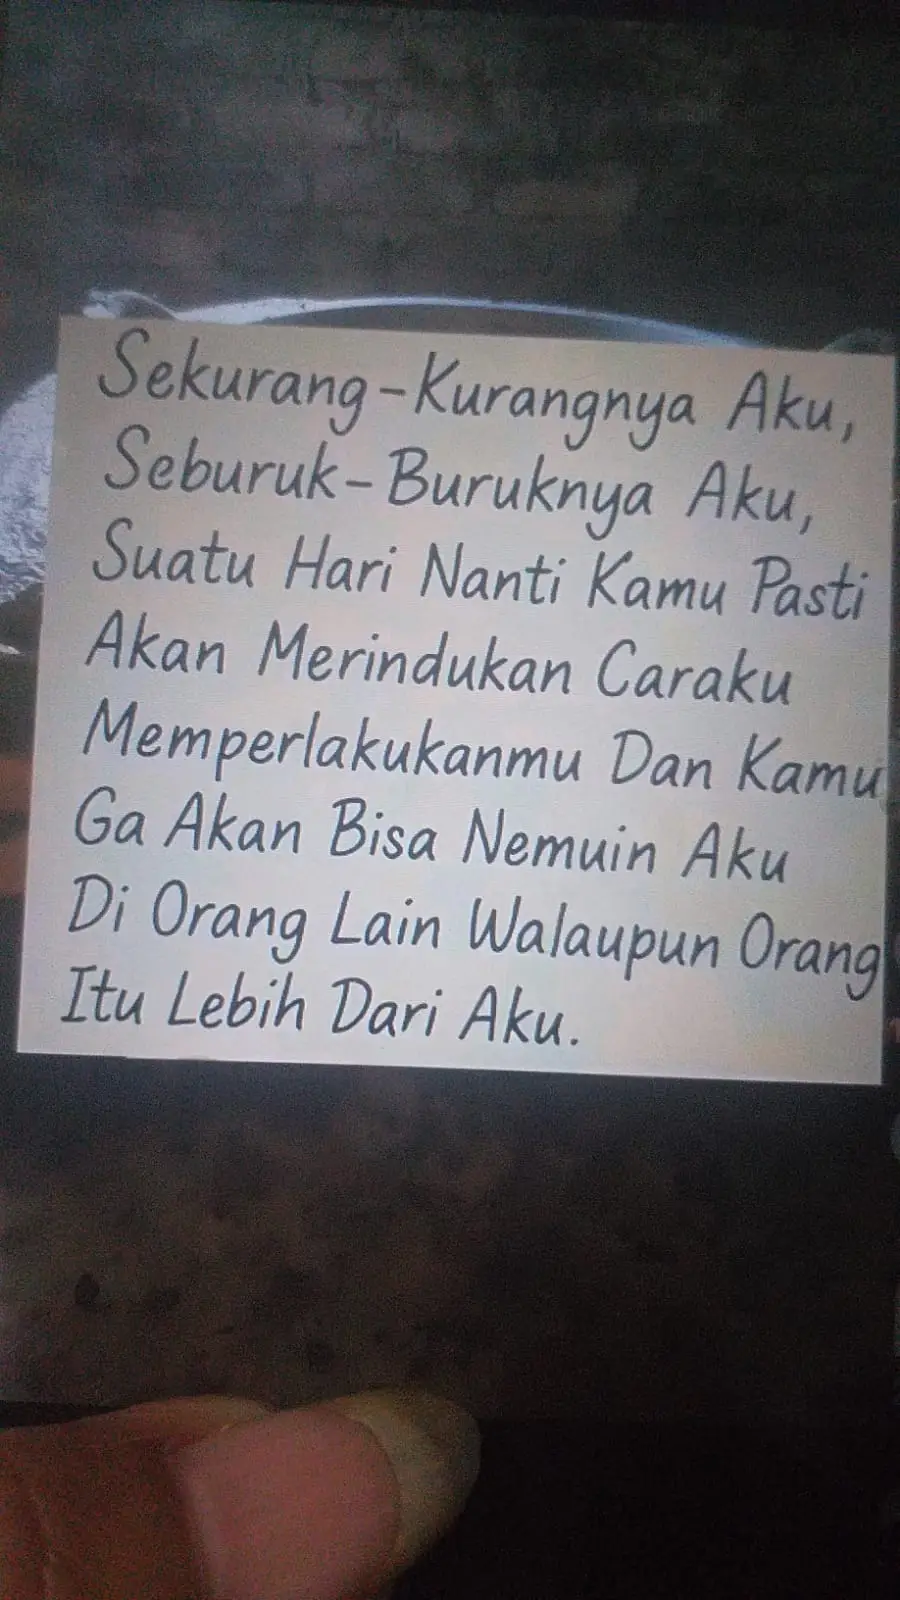 Sekurang-Kurangnya Aku,
Seburuk-Buruknya Aku,
Suatu Hari Nanti Kamu Pasti
Akan Merindukan Caraku
Memperlakukanmu Dan Kamu
Ga Akan Bisa Nemuin Aku
Di Orang Lain Walaupun Orang
Itu Lebih Dari Aku.